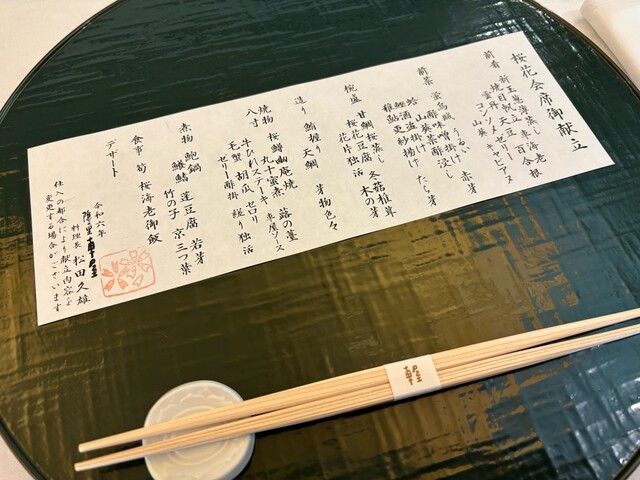 桜花会席御献立
前肴 新玉葱漢蒸し 海老 百合根
焼目帆立 豆乳ゼリー キャビア
雲丹 天豆
前菜 蛍烏賊 うるい 赤芽
酢味噌掛け
山葵菜浸し
蛤酒盗掛け たら芽
稚鮎更紗揚げ
椀盛 甘鯛桜蒸し 冬菇椎茸
桜花豆腐 木の芽
花弁独活
造り 鮪握り 天鯛 芽物色々
焼物 桜鱒幽庵焼 蕗の薹
八寸 丸十蜜煮
牛ひれステーキ 東屋ソース
毛蟹 胡瓜 セロリ
ゼリー酢掛 縒り独活
煮物 鮑鍋 蓬豆腐 若芽
鱶鰭 竹の子 京三つ葉
食事 筍 桜海老御飯
デザート
令和六年
料理長 松田久雄
仕入の都合により献立内容を
変更する場合がございます